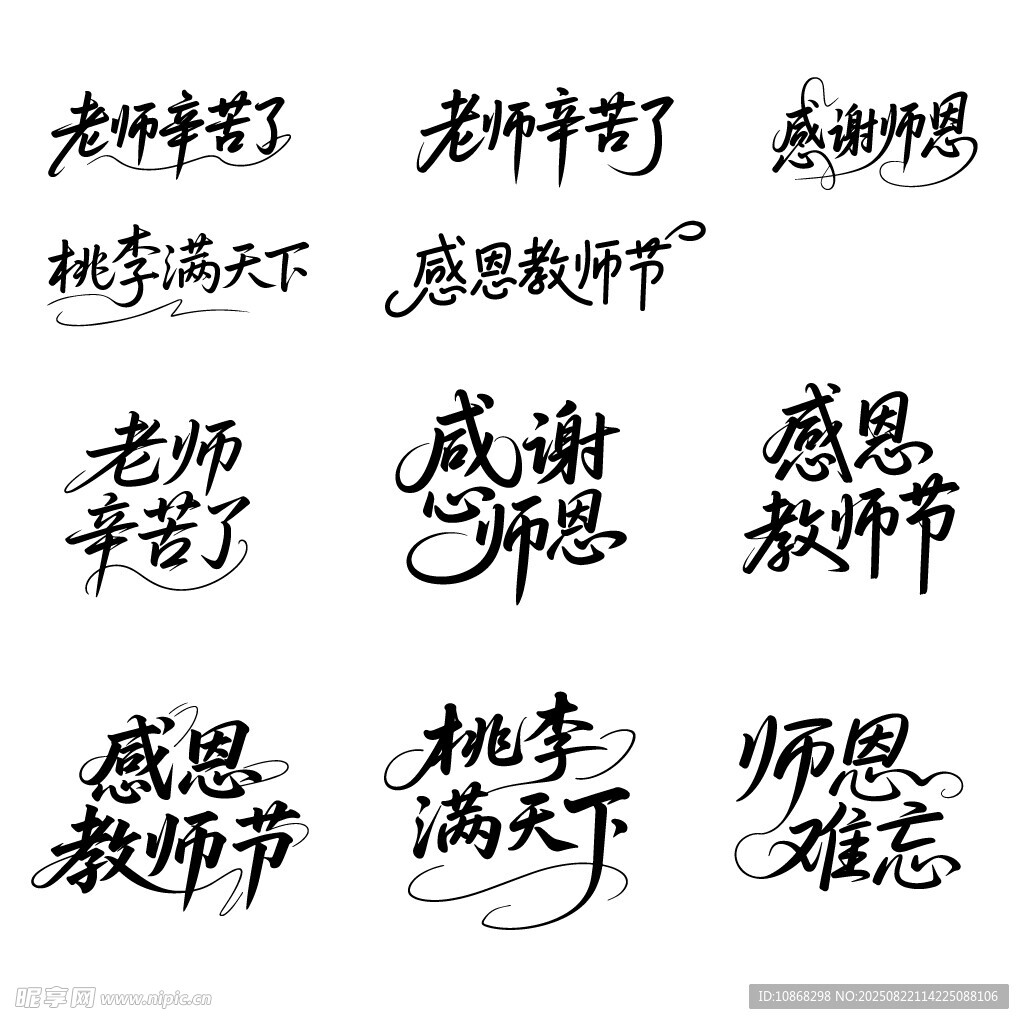 老师辛苦了
老师辛苦了
感谢师恩
桃李满天下
感恩教师节
老师
辛苦了
感谢
师恩
感恩
教师节
感恩
教师节
桃李
满天下
师恩
难忘
昵享网 www.nipic.cn
ID:10868298 NO:20250822114225088106